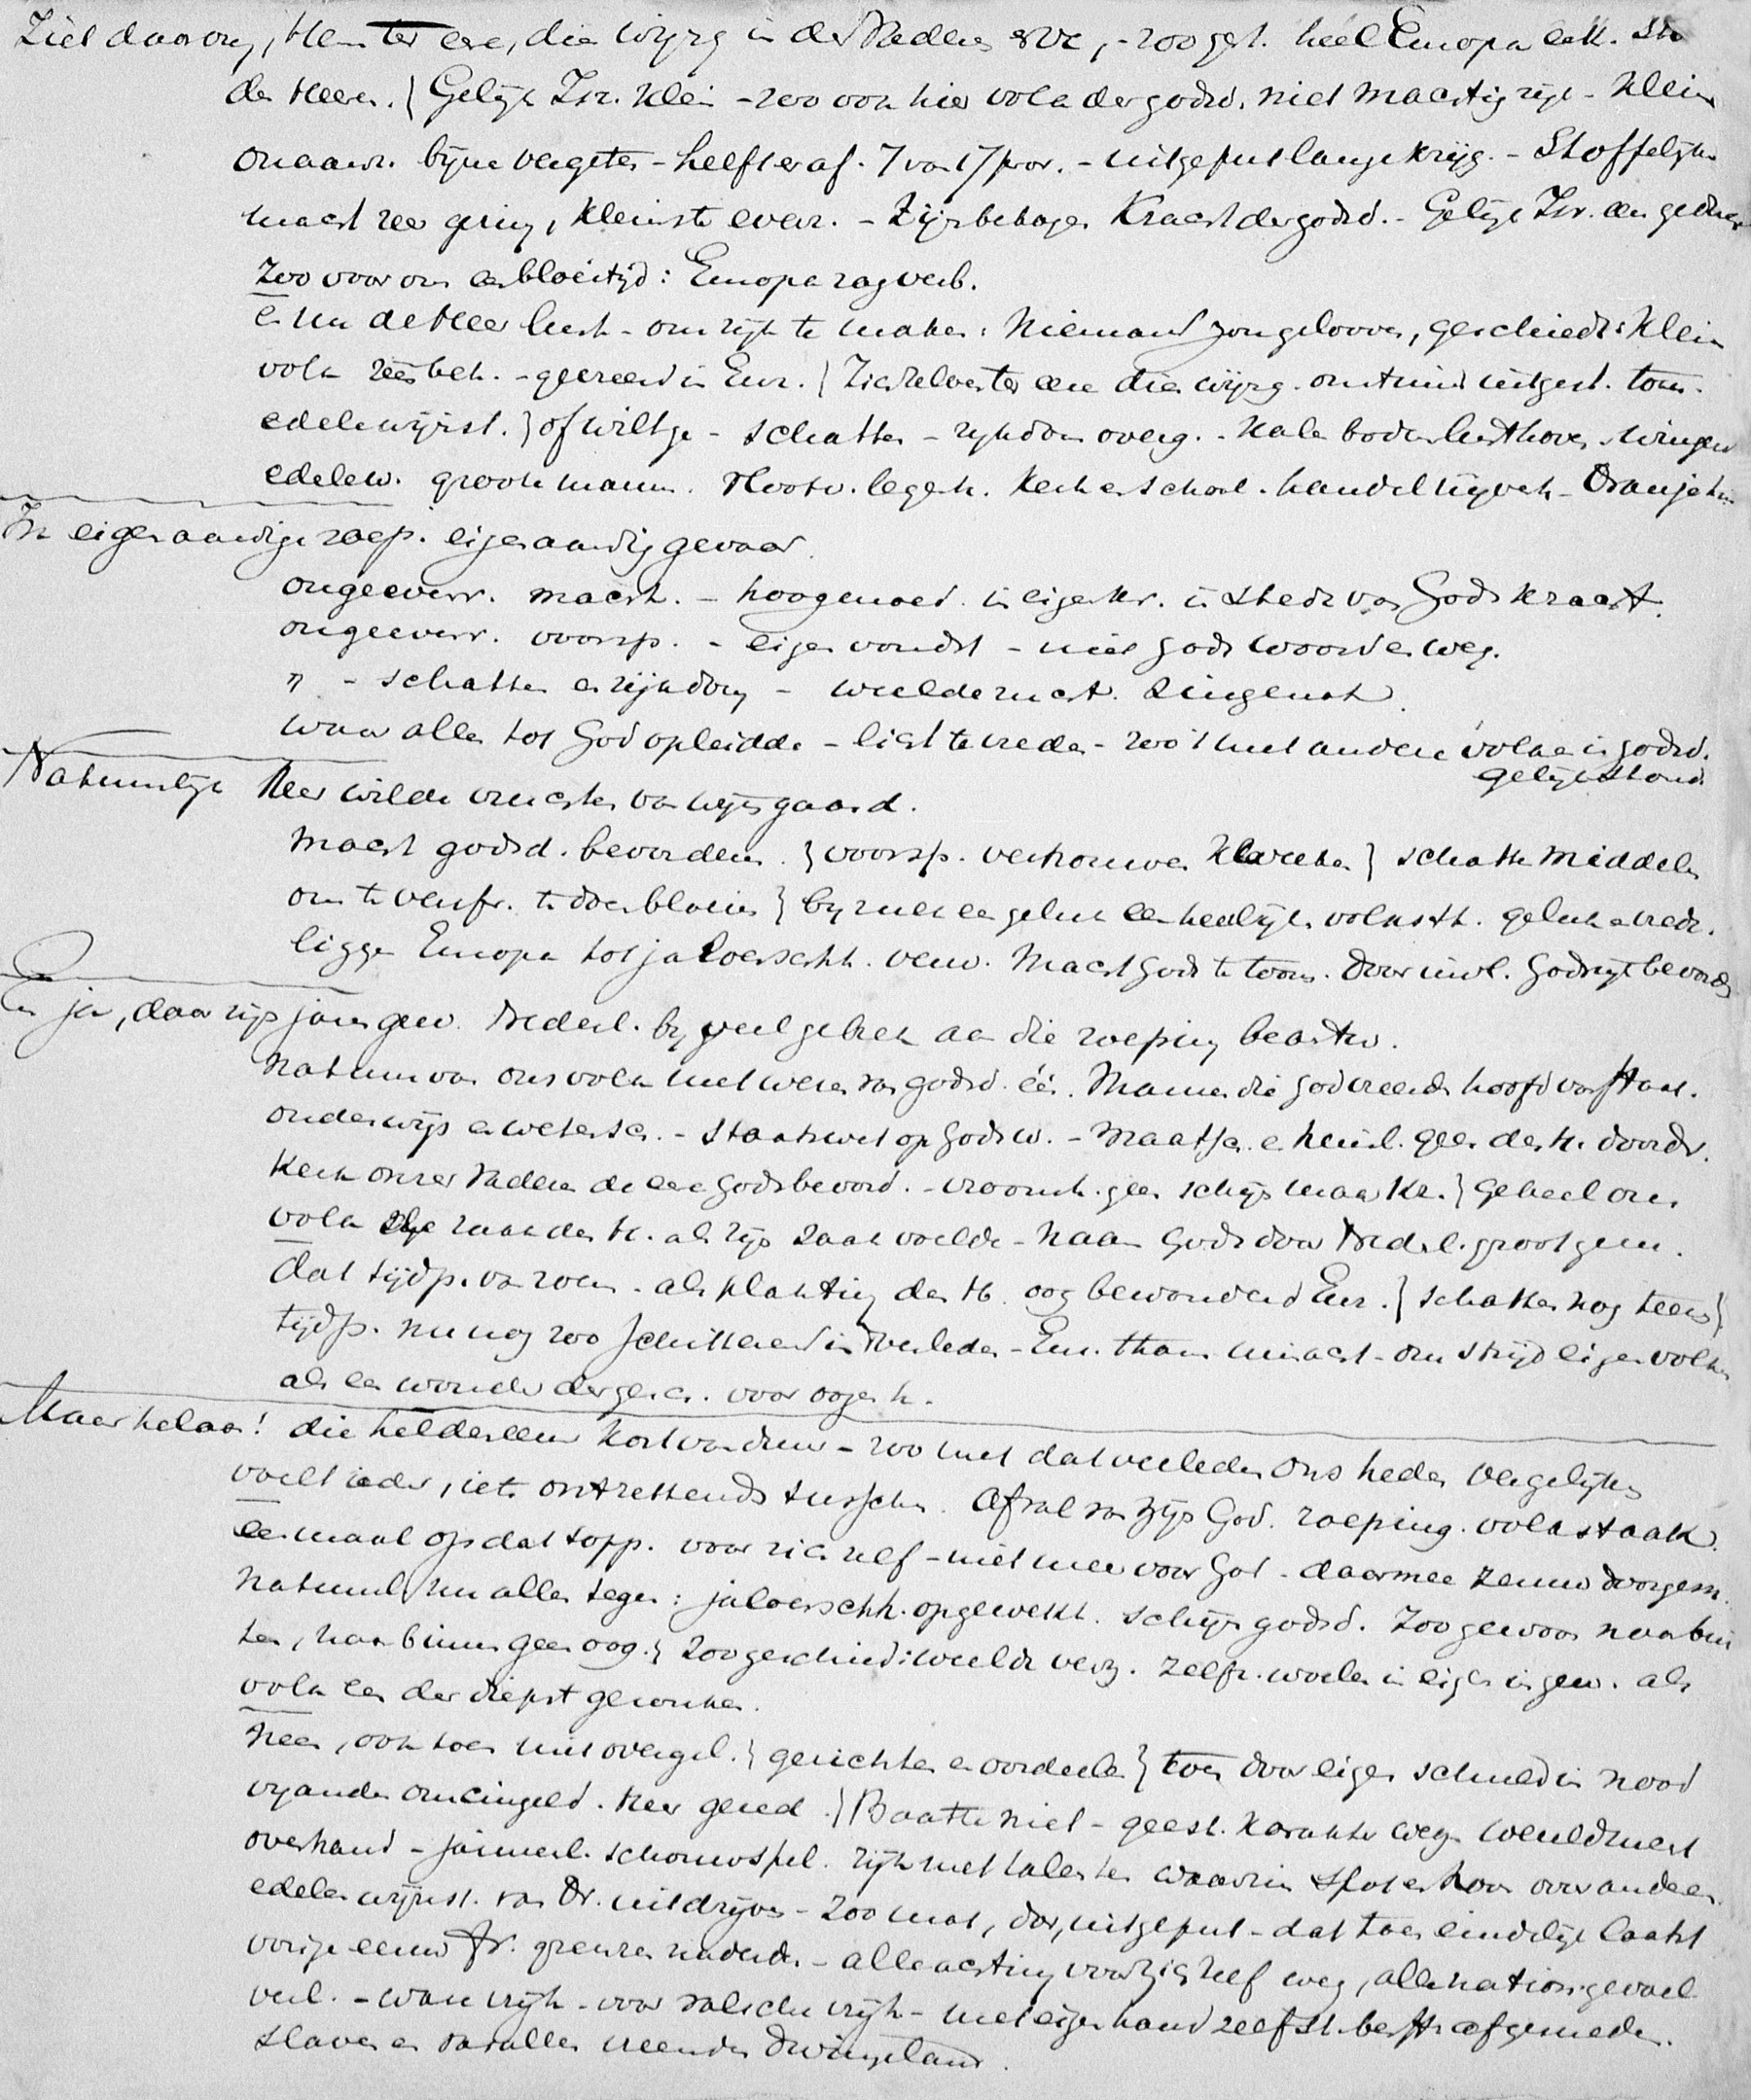 Ziet daarom, Hem ter eere, die wijng in der Vaderen erve, - zoo gepl. heel Europa
der Heere. } Gelijk Isr. klein - zoo ook hier volk der godsd. niet machtig rijk - klein
onaanz. bijna vergeten - helft er af. 7 van 17 prov. - uitgeput lange krijg. - Stoffelijke
macht zeer gering, kleinste evenr. - Zijn behagen Kracht der godsd. - Gelijk Isr. een
Zoo voor ons een bloeitijd: Europa zag verb.
en nu de Heer lust - om rijk te maken: Niemand zou gelooven, geschiedt: klein
volk zeebeh. - geëerd in Eur. } Ziet zelve ter eere die wijng. omtuind uitgest. toren.
edele wijnst. } of wilt ge - schatten - rijkdom overg. - Kale bodem lusthoven
edele w. groote mann. Vlootv. legerh. Kerk en school. handel nijverh - Oranjeh
In eigenaardige roep. eigenaardig gevaar.
ongeevenr. macht. - hoogmoed. in eigen kr. in stede van Gods kracht.
ongeevenr. voorsp. - eigen vondst - niet Gods woord en weg.
" - schatten en rijkdom - weeldezucht. zingenot.
waar alles tot God opleidde - licht tevreden - zoo 't met andere volken in godsd.
gelijk stond.
Natuurlijk Heer wilde vruchten van wijngaard.
Macht godsd. bevorderen. } voorsp. vertrouwen kweeken } schatten middelen
om te verfr. te doen bloeien } bij rust en geluk een heerlijk volksst. geluk en vrede.
ligge Europa tot jaloerschh. verw. Macht Gods te toon. Door invl. Godsrijk bevord
En ja, daar zijn jaren gew. Nederl. bij veel gebrek aan die roeping beantw.
Natuur van ons volk met wezen van godsd. één. Mannen die God vreesden hoofd van Staat.
onderwijs en wetensch. - Staatswet op Gods w. - Maatsch. en huisl. geen des H. doordr.
Kerk onzer Vaderen de eere Gods bevord. - vroomh. geen schijn maar kr. } Geheel ons
volk zaak des H. als zijn zaak voelde - Naam Gods door Nederl. groot gem.
Dat tijdp. van roem - als planting des H. oog bewonderend Eur. } schatten nog teeren }
tijdp. nu nog zoo schitterend in verleden - Eur. thans minacht - om strijd eigen volken
als een wonder der gesch. voor oogen h.
Maar helaas! die heldeneeuw kort van duur - zoo met dat verleden ons heden vergelijken
voelt ieder, iets ontzettends tusschen. Afval van zijn God. roeping. volkstaak.
eenmaal op dat topp. voor zich zelf - niet meer voor God - daarmee zenuw doorgesn.
Natuurl. nu alles tegen: jaloerschh. opgewekt. Schijn godsd. Zoo gewoon naar bui
ten, naar binnen geen oog. } Zoo geschied: weelde verz. zelfz. woelen in eigen ingew. als
volk een der diepst gezonken.
Neen, ook toen niet overgel. } gerichten en oordeelen } toen door eigen schuld in nood
vijanden omcingeld. Heer gered. } Baatte niet - geest. karakter weg - weeldzucht
overhand - jammerl. schouwspel. rijk met talenten waarin spot en hoon over anderen
edelen wijnst. van Dr. uitdrijven - zoo mat, dor, uitgeput - dat toen eindelijk laatst
vorige eeuw Fr. grenzen naderde. - alle achting voor zich zelf weg, alle nationgevoel
verl. - ware vrijh - voor valsche vrijh - met eigen hand zelfst. besttr afgesneden.
Slaven en van alles vreemden dwingeland.